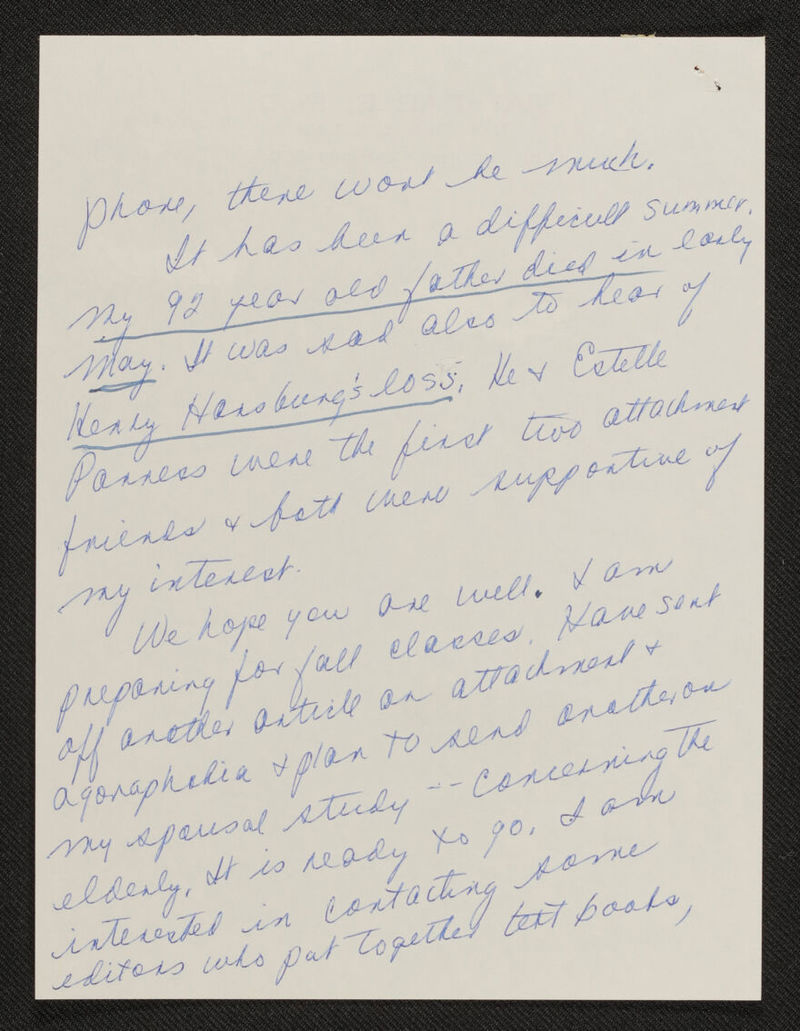 phone, there wont be much.
It has been a difficult summer.
My 92 year old father died in early
May. It was sad also to hear of
Henry Hansburg's loss. He & Estelle
Panness were the first two attachment
friends & both were supportive of
my interest.
We hope you are well. I am
preparing for fall classes. Have sent
off another article on attachment &
agoraphobia & plan to send another on
my spousal study -- concerning the
elderly. It is ready to go. I am
interested in contacting some
editors who put together text books,